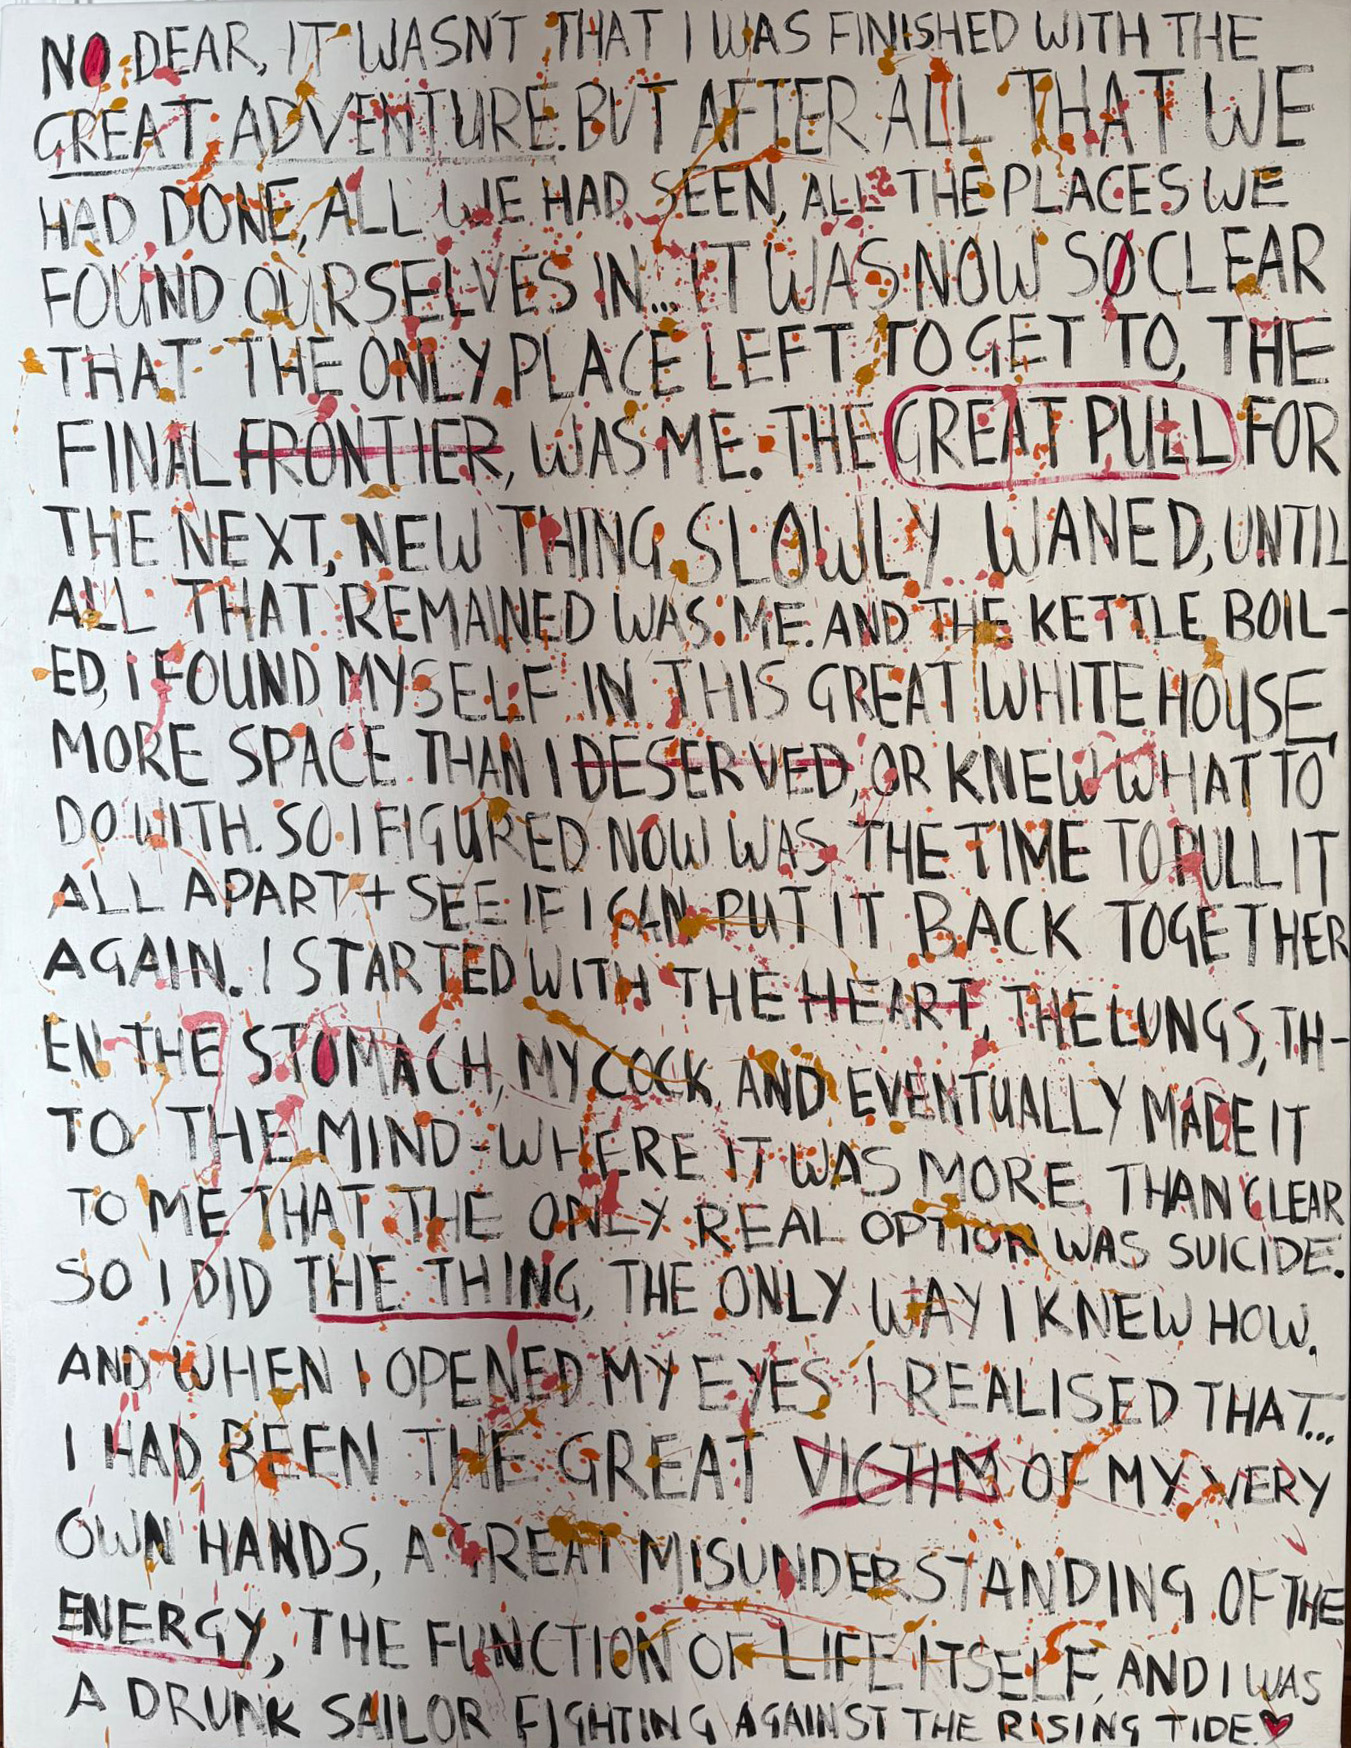 NO DEAR, IT WASN'T THAT I WAS FINISHED WITH THE
GREAT ADVENTURE. BUT AFTER ALL THAT WE
HAD DONE, ALL WE HAD SEEN, ALL THE PLACES WE
FOUND OURSELVES IN... IT WAS NOW SO CLEAR
THAT THE ONLY PLACE LEFT TO GET TO, THE
FINAL FRONTIER, WAS ME. THE GREAT PULL FOR
THE NEXT, NEW THING SLOWLY WANED, UNTIL
ALL THAT REMAINED WAS ME. AND THE KETTLE BOIL-
ED, I FOUND MYSELF IN THIS GREAT WHITE HOUSE,
MORE SPACE THAN I DESERVED, OR KNEW WHAT TO
DO WITH. SO I FIGURED NOW WAS THE TIME TO PULL IT
ALL APART + SEE IF I CAN PUT IT BACK TOGETHER
AGAIN. I STARTED WITH THE HEART, THE LUNGS, TH-
EN THE STOMACH, MY COCK, AND EVENTUALLY MADE IT
TO THE MIND - WHERE IT WAS MORE THAN CLEAR
TO ME THAT THE ONLY REAL OPTION WAS SUICIDE.
SO I DID THE THING, THE ONLY WAY I KNEW HOW.
AND WHEN I OPENED MY EYES I REALISED THAT...
I HAD BEEN THE GREAT VICTIM OF MY VERY
OWN HANDS, A GREAT MISUNDERSTANDING OF THE
ENERGY, THE FUNCTION OF LIFE ITSELF, AND I WAS
A DRUNK SAILOR FIGHTING AGAINST THE RISING TIDE.